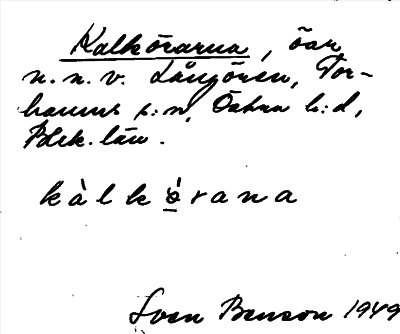 Kalkörarna, öar
n.n.v. Långören, Tor-
hamns s:n, Östra h:d,
Blek. län.
kàlkö́rana
Sven Benson 1949